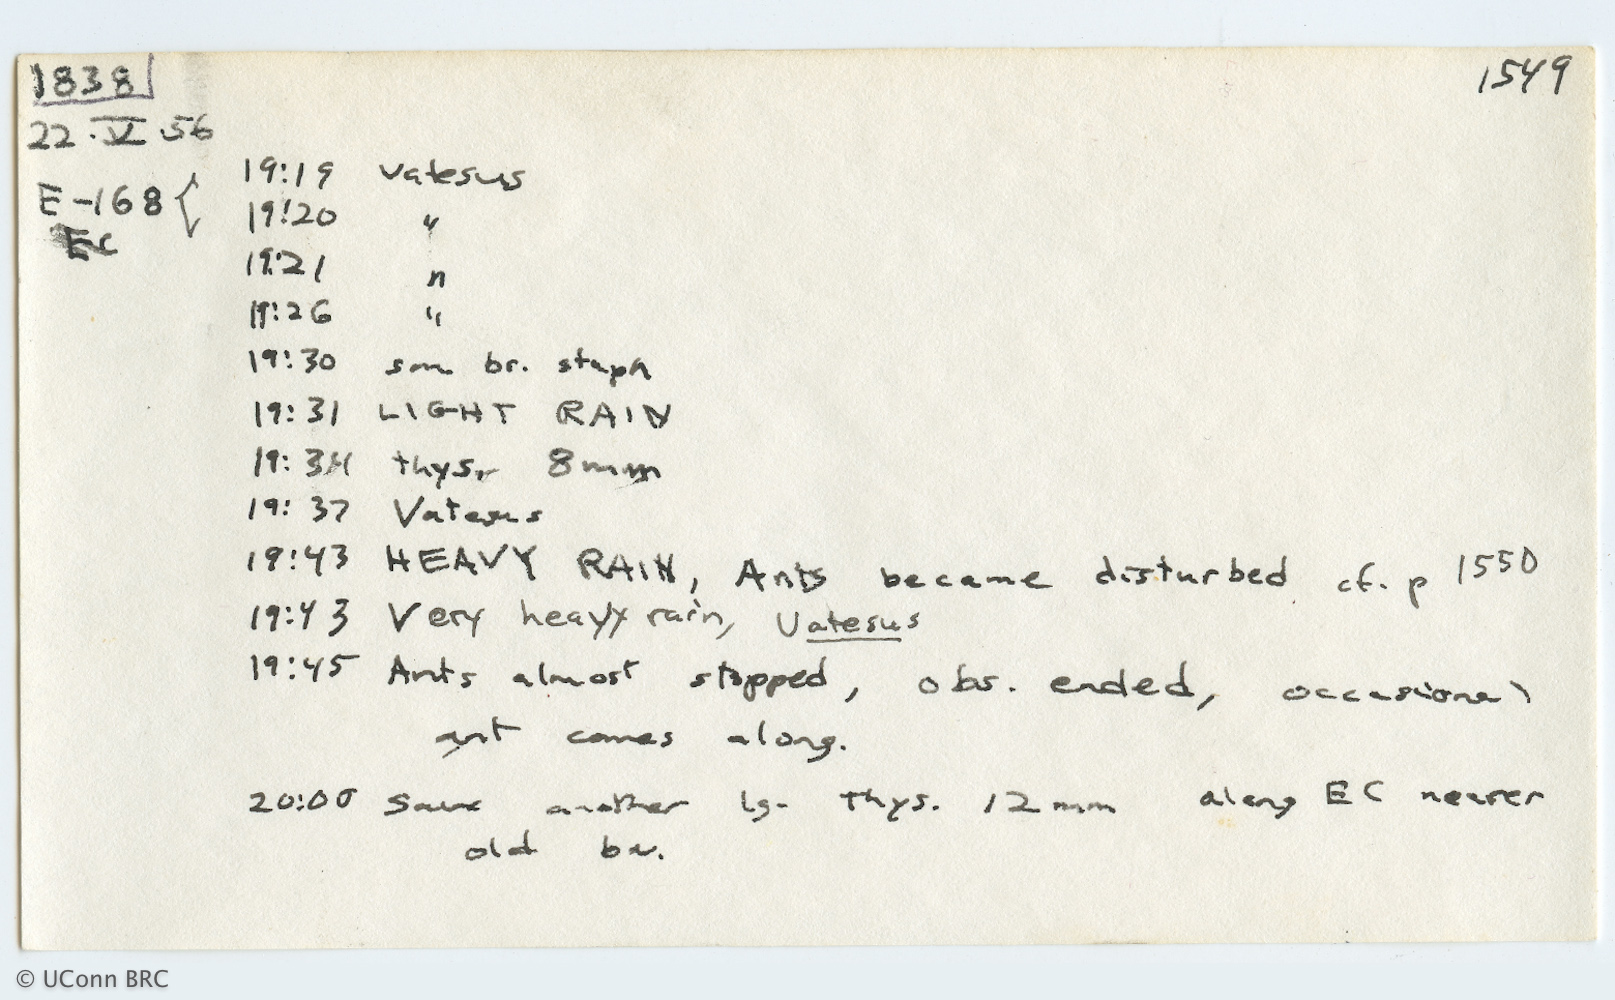 1838
1549
22.V.56
E-168 {
EC
19:19 Vatesus
19:20 "
19:21 "
19:26 "
19:30 sm. br. staph
19:31 LIGHT RAIN
19:34 thys. 8mm
19:37 Vatesus
19:43 HEAVY RAIN, Ants became disturbed cf. p 1550
19:43 Very heavy rain, Vatesus
19:45 Ants almost stopped, obs. ended, occasional
ant comes along.
20:00 Saw another lg. thys. 12mm along EC nearer
old bv.
© UConn BRC